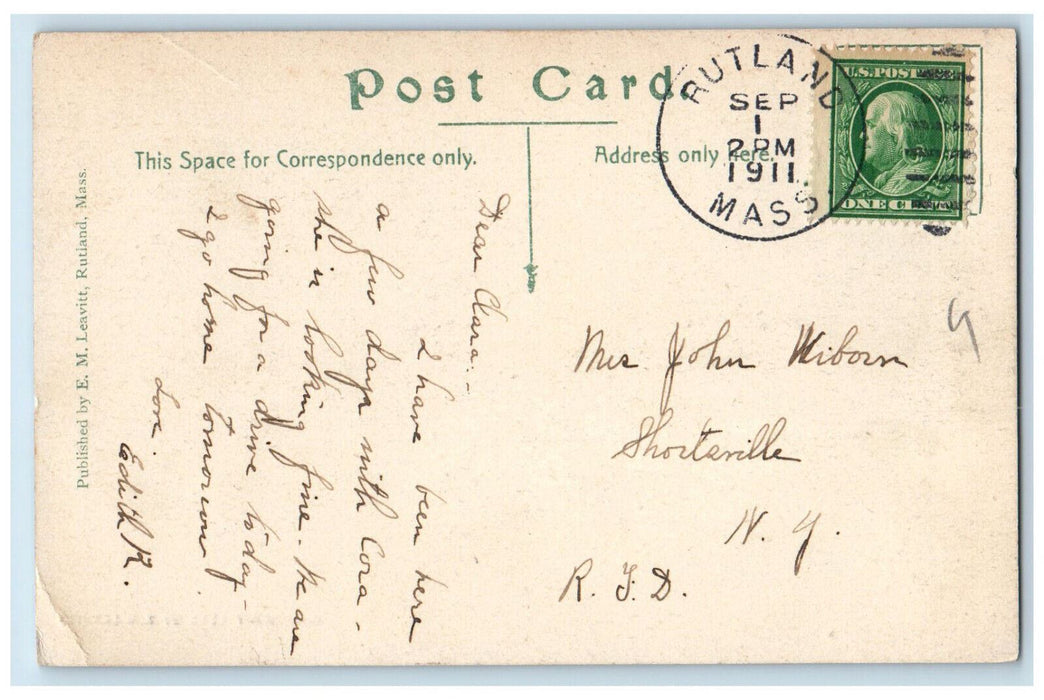 Post Card.
This Space for Correspondence only.
Address only here.
RUTLAND
SEP
1
2 PM
1911
MASS.
U.S. POST
ONE CE
Published by E. M. Leavitt, Rutland, Mass.
Dear Clara.-
I have been here
a few days with Cora -
she is looking fine - We are
going for a drive to day -
I go home tomorrow
Love
Edith R.
Mrs John Wiborn
Shortsville
N. Y.
R. F. D.